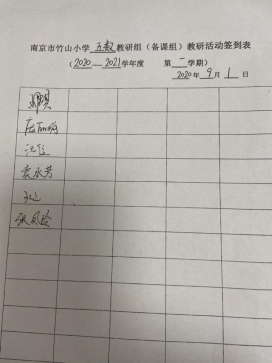 南京市竹山小学五数教研组（备课组）教研活动签到表
（2020—2021学年度 第一学期）
2020年9月1日
袁永芳
张风玲